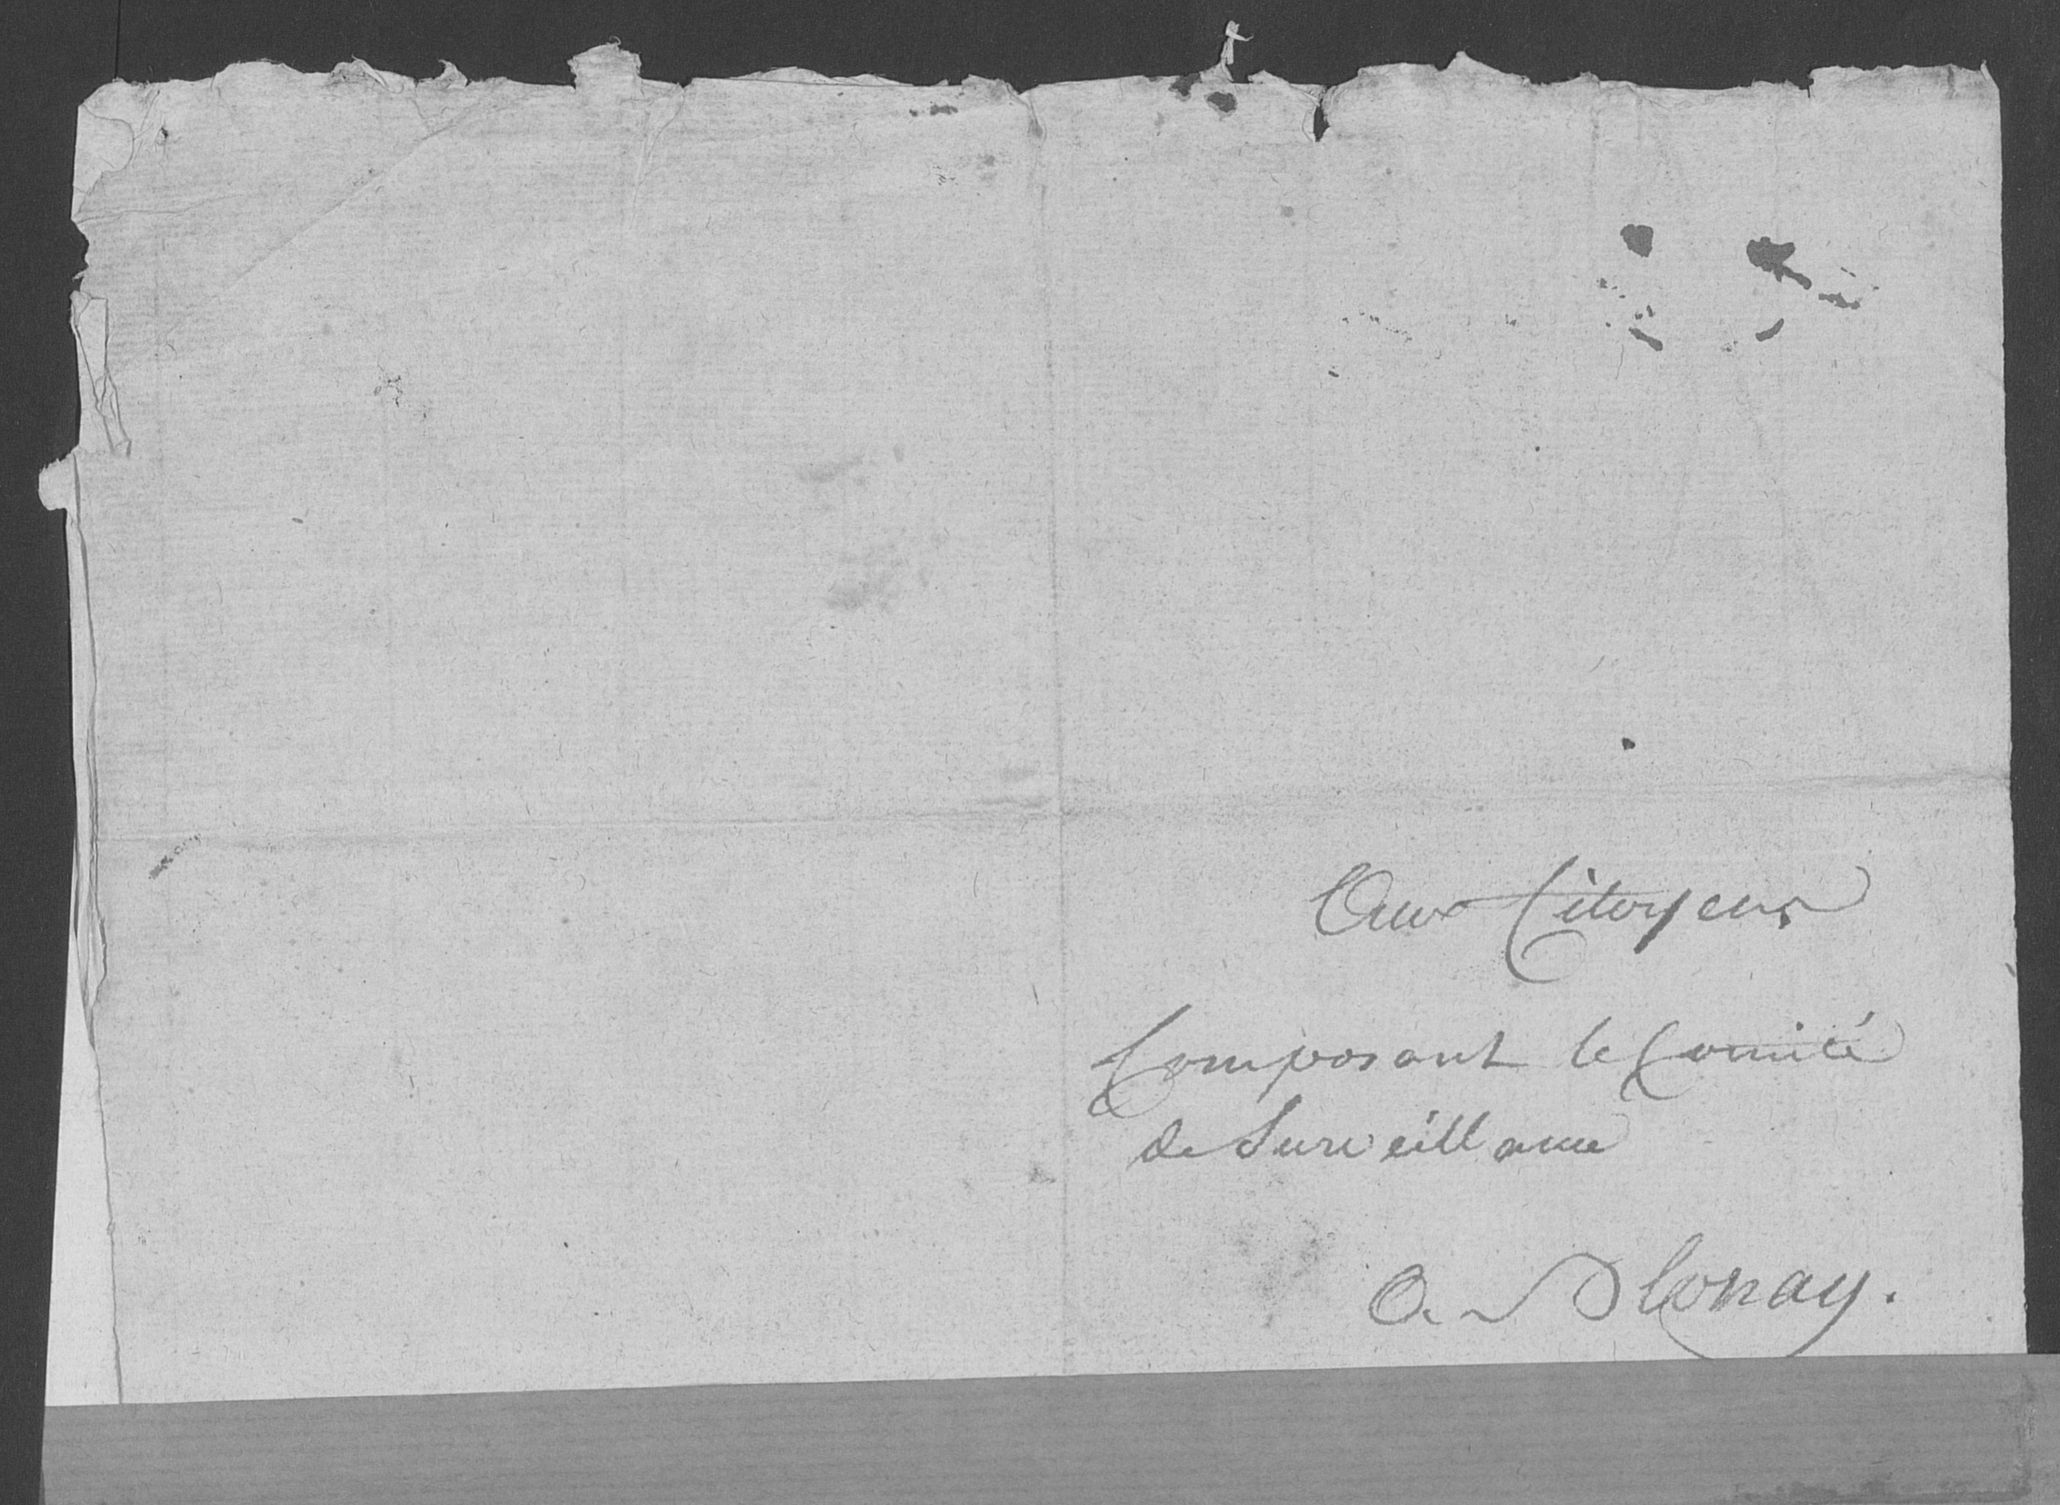 Aux Citoyens
Composant le Comité
de Surveillance
A Blonay.